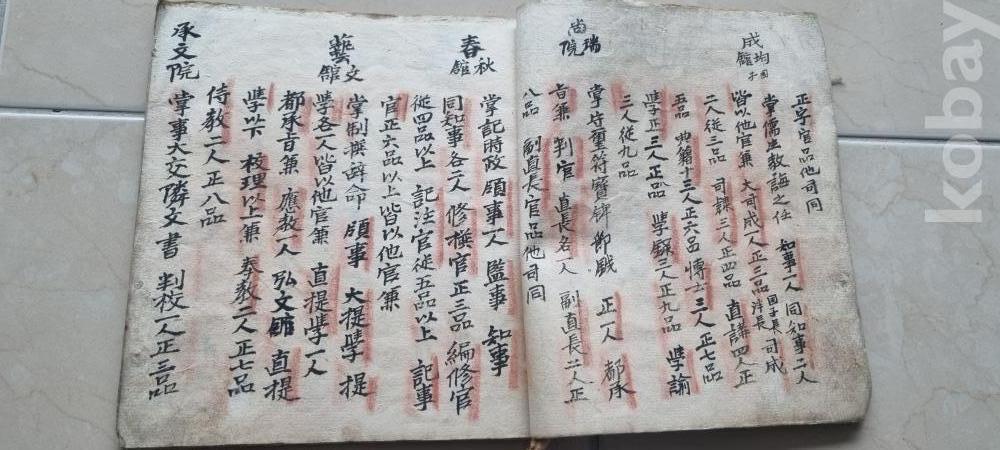 正字官品他司同
成均館
國子
掌儒生教誨之任 知事一人 同知事二人
皆以他官兼 大司成一人正三品 國子長 司成
二人從三品 司課三人正四品 直講四人正
五品 典籍十三人正六品 博士三人正七品
學正三人正品 學錄三人正九品 學諭
三人從九品
尚瑞院
掌符璽符寶節御 正一人 都承
旨兼 判官 直長各一人 副直長二人正
八品 副直長官品他司同
春秋館
掌記時政 領事一人 監事 知事
同知事各二人 修撰官正三品 編修官
從四品以上 記注官從五品以上 記事
官正六品以上皆以他官兼
藝文館
掌制撰辭命 領事 大提學 提
學各人皆以他官兼 直提學一人
都承旨兼 應教一人 弘文館 直提
學以下 校理以上兼 奉教二人正七品
侍教二人正八品
承文院
掌事大交隣文書 判校一人正三品
kobay